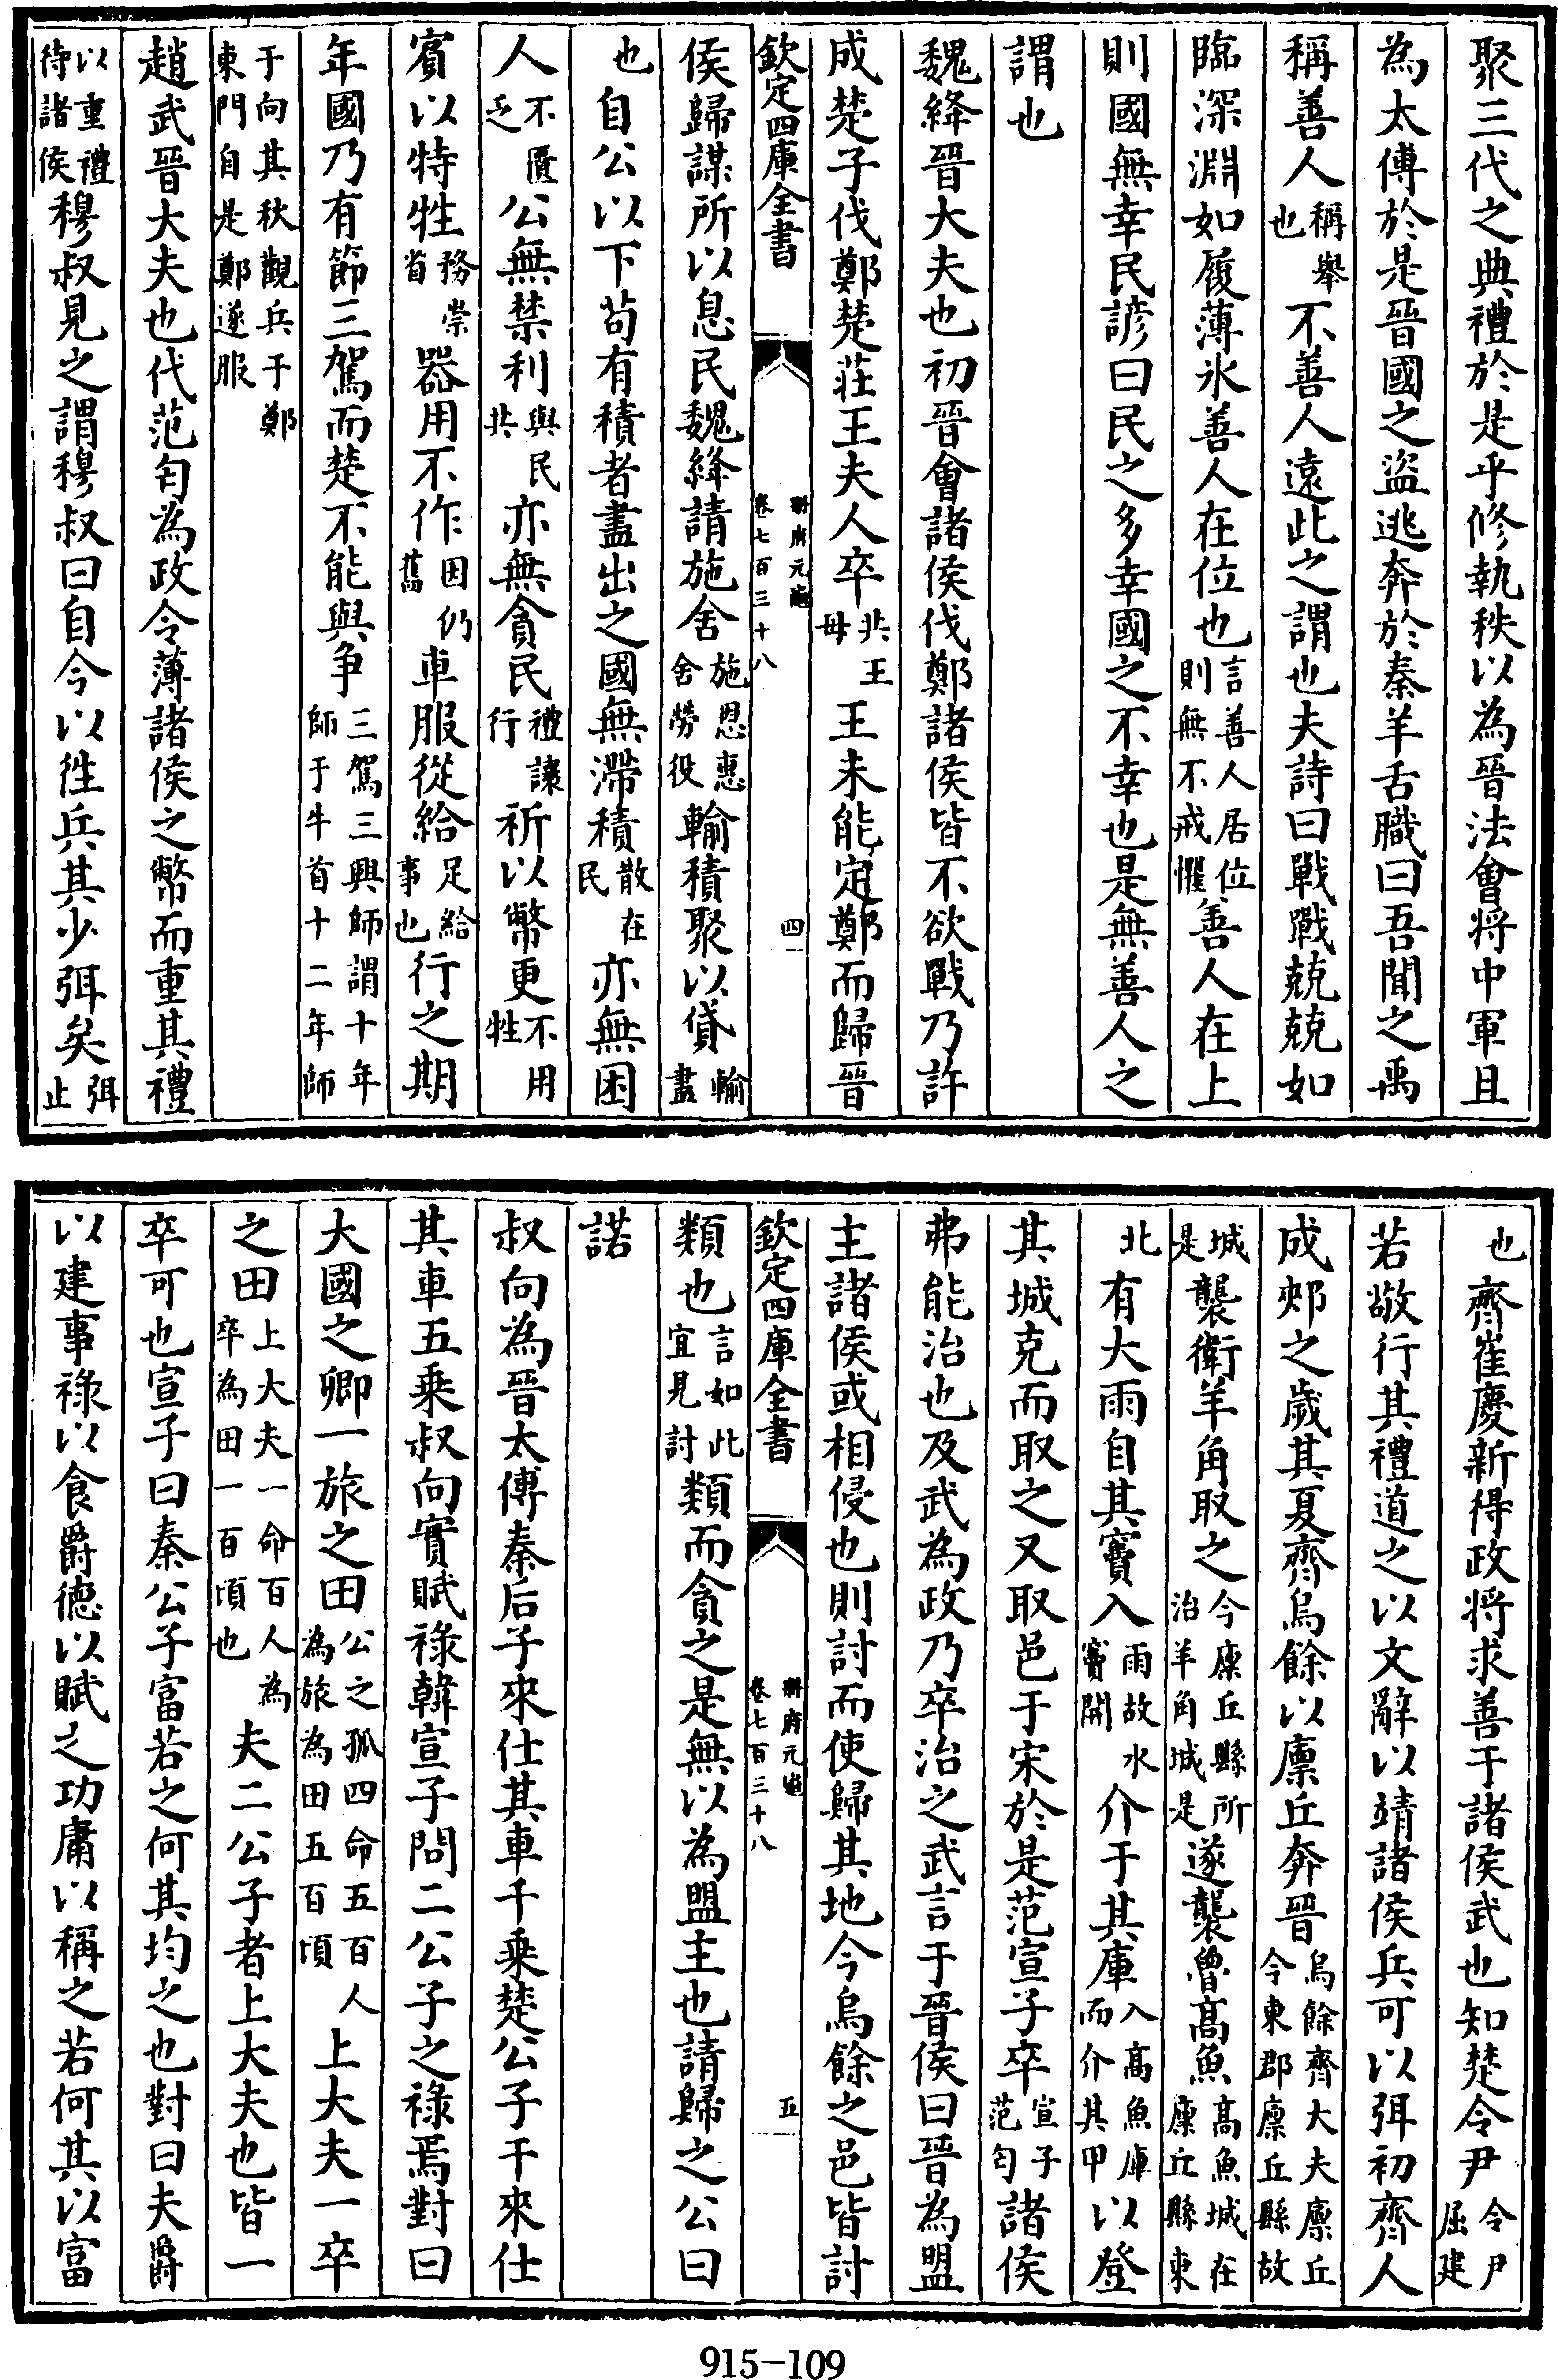 聚三代之典禮於是乎修執秩以為晉法會將中軍且
為太傅於是晉國之盜逃奔於秦羊舌職曰吾聞之禹
稱善人稱舉也不善人遠此之謂也夫詩曰戰戰兢兢如
臨深淵如履薄氷善人在位也言善人居位則無不戒懼善人在上
則國無幸民諺曰民之多幸國之不幸也是無善人之
謂也
魏絳晉大夫也初晉會諸侯伐鄭諸侯皆不欲戰乃許
成楚子伐鄭楚莊王夫人卒共王母王未能定鄭而歸晉
欽定四庫全書 冊府元龜卷七百三十八 四
侯歸謀所以息民魏絳請施舍施恩惠舍勞役輸積聚以貸輸盡
也自公以下苟有積者盡出之國無滯積散在民亦無困
人不匱乏公無禁利與民共亦無貪民禮讓行祈以幣更不用牲
賓以特牲務崇省器用不作因仍舊車服從給足給事也行之期
年國乃有節三駕而楚不能與爭三駕三興師謂十年師于牛首十二年師
于向其秋觀兵于鄭東門自是鄭遂服
趙武晉大夫也代范匄為政令薄諸侯之幣而重其禮
以重禮待諸侯穆叔見之謂穆叔曰自今以徃兵其少弭矣弭止
也齊崔慶新得政將求善于諸侯武也知楚令尹令尹屈建
若敬行其禮道之以文辭以靖諸侯兵可以弭初齊人
成郟之歲其夏齊烏餘以廩丘奔晉烏餘齊大夫廩丘今東郡廩丘縣故
城是襲衛羊角取之今廩丘縣所治羊角城是遂襲魯高魚高魚城在廩丘縣東
北有大雨自其竇入雨故水竇開介于其庫入高魚庫而介其甲以登
其城克而取之又取邑于宋於是范宣子卒宣子范匄諸侯
弗能治也及武為政乃卒治之武言于晉侯曰晉為盟
主諸侯或相侵也則討而使歸其地今烏餘之邑皆討
欽定四庫全書 冊府元龜卷七百三十八 五
類也言如此宜見討類而貪之是無以為盟主也請歸之公曰
諾
叔向為晉太傅秦后子來仕其車千乗楚公子干來仕
其車五乗叔向實賦祿韓宣子問二公子之祿焉對曰
大國之卿一旅之田公之孤四命五百人為旅為田五百頃上大夫一卒
之田上大夫一命百人為卒為田一百頃也夫二公子者上大夫也皆一
卒可也宣子曰秦公子富若之何其均之也對曰夫爵
以建事祿以食爵德以賦之功庸以稱之若何其以富
915-109